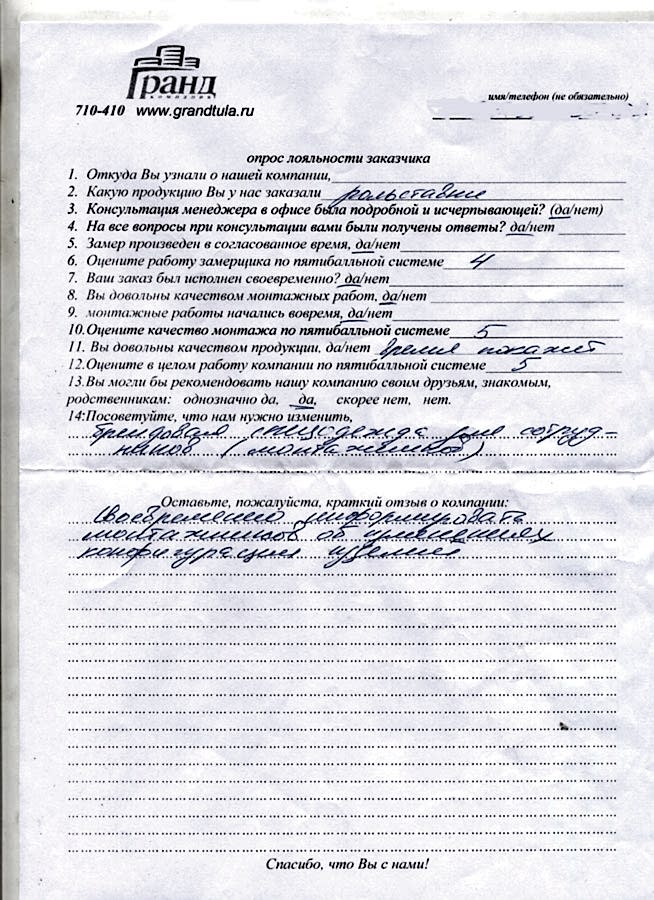 Гранд
КОМПАНИЯ
710-410 www.grandtula.ru
имя/телефон (не обязательно)
опрос лояльности заказчика
1. Откуда Вы узнали о нашей компании,
2. Какую продукцию Вы у нас заказали рольставни
3. Консультация менеджера в офисе была подробной и исчерпывающей? (да/нет)
4. На все вопросы при консультации вами были получены ответы? да/нет
5. Замер произведен в согласованное время, да/нет
6. Оцените работу замерщика по пятибалльной системе 4
7. Ваш заказ был исполнен своевременно? да/нет
8. Вы довольны качеством монтажных работ, да/нет
9. монтажные работы начались вовремя, да/нет
10. Оцените качество монтажа по пятибалльной системе 5
11. Вы довольны качеством продукции, да/нет время покажет
12. Оцените в целом работу компании по пятибалльной системе 5
13. Вы могли бы рекомендовать нашу компанию своим друзьям, знакомым,
родственникам: однозначно да, да, скорее нет, нет.
14. Посоветуйте, что нам нужно изменить,
брендовая спецодежда для сотруд-
ников (монтажников)
Оставьте, пожалуйста, краткий отзыв о компании:
Своевременно информировать
монтажников об изменениях
конфигурации изделия
Спасибо, что Вы с нами!